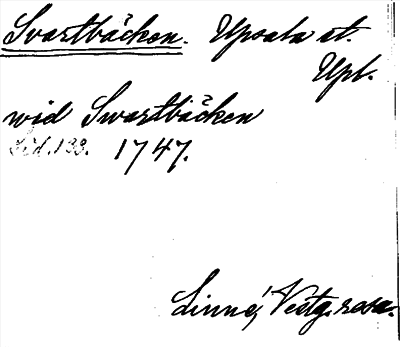 Svartbäcken. Upsala st.
Upl.
wid Swartbäcken
Sid. 133. 1747.
Linné, Västg.resa.